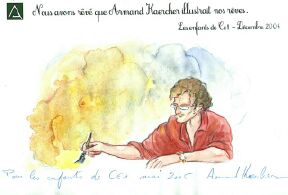 Nous avons rêvé que Armand Kaercher illustrait nos rêves.
Les enfants de Ce1 - Décembre 2004
Pour les enfants de CE1 mai 2005 Armand Kaercher